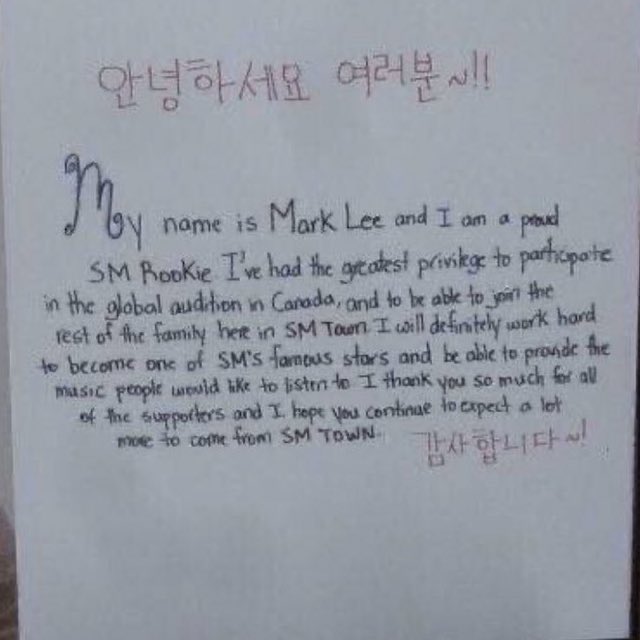 안녕하세요 여러분~!!
My name is Mark Lee and I am a proud
SM Rookie I've had the greatest privilege to participate
in the global audition in Canada, and to be able to join the
rest of the family here in SM Town I will definitely work hard
to become one of SM's famous stars and be able to provide the
music people would like to listen to I thank you so much for all
of the supporters and I hope you continue to expect a lot
more to come from SM TOWN.
감사합니다~!